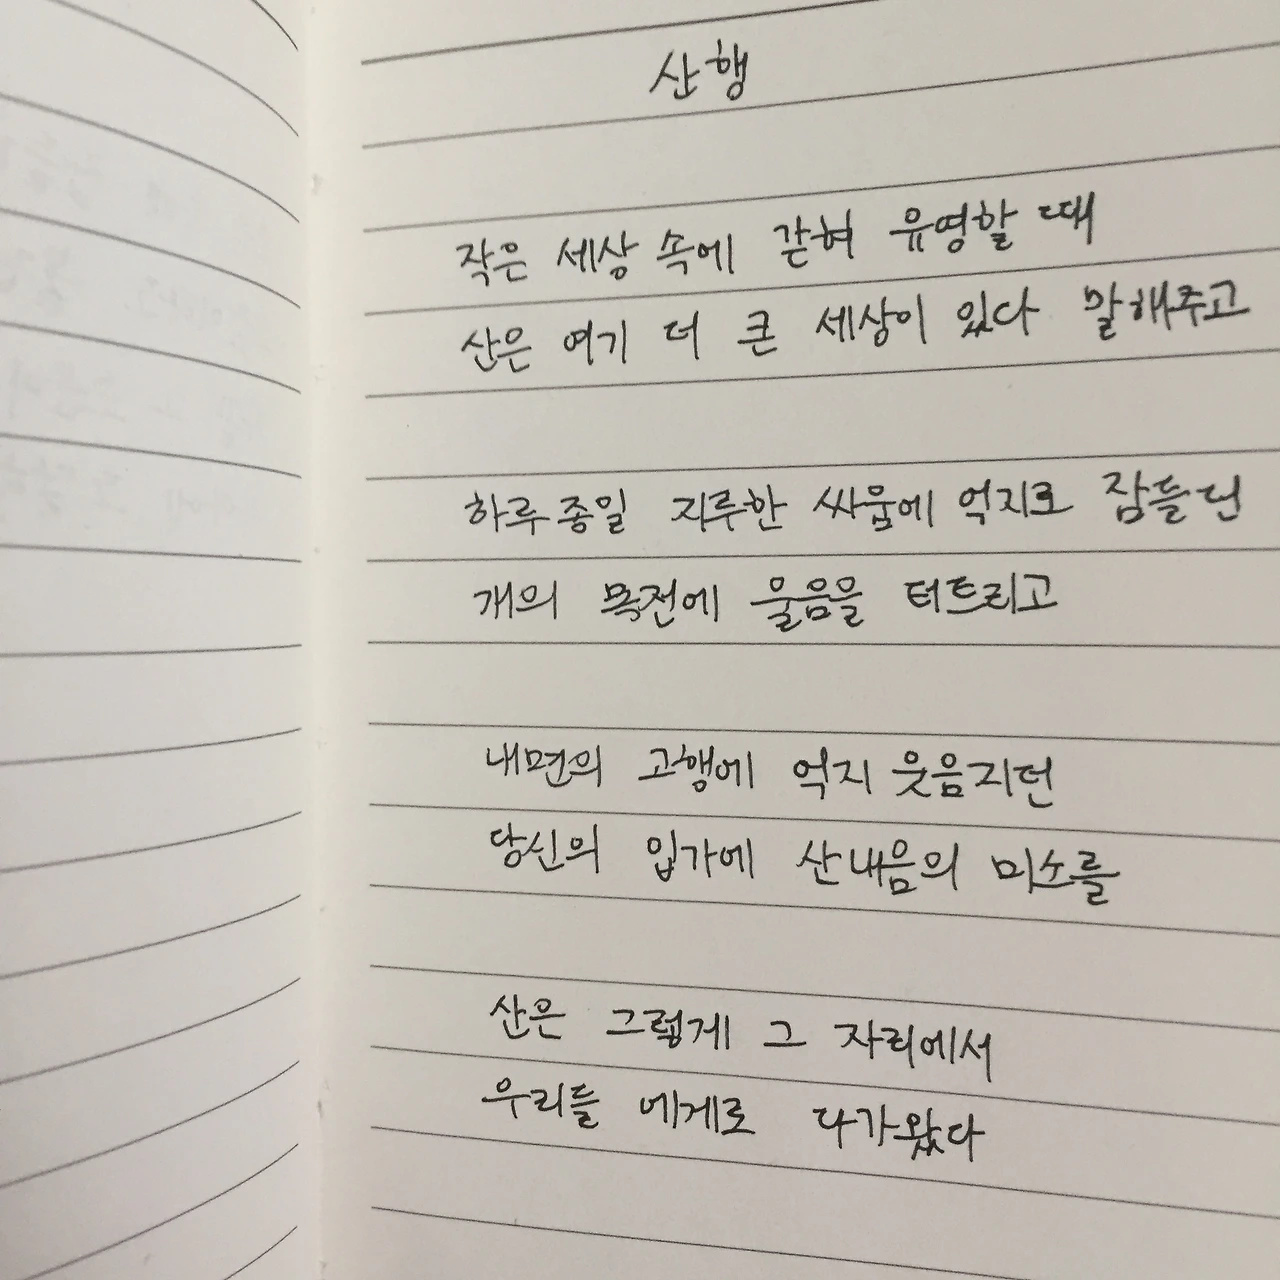 산행
작은 세상 속에 갇혀 유영할 때
산은 여기 더 큰 세상이 있다 말해주고
하루종일 지루한 싸움에 억지로 잠들던
개의 목전에 울음을 터트리고
내면의 고행에 억지 웃음지던
당신의 입가에 산내음의 미소를
산은 그렇게 그 자리에서
우리들 에게로 다가왔다